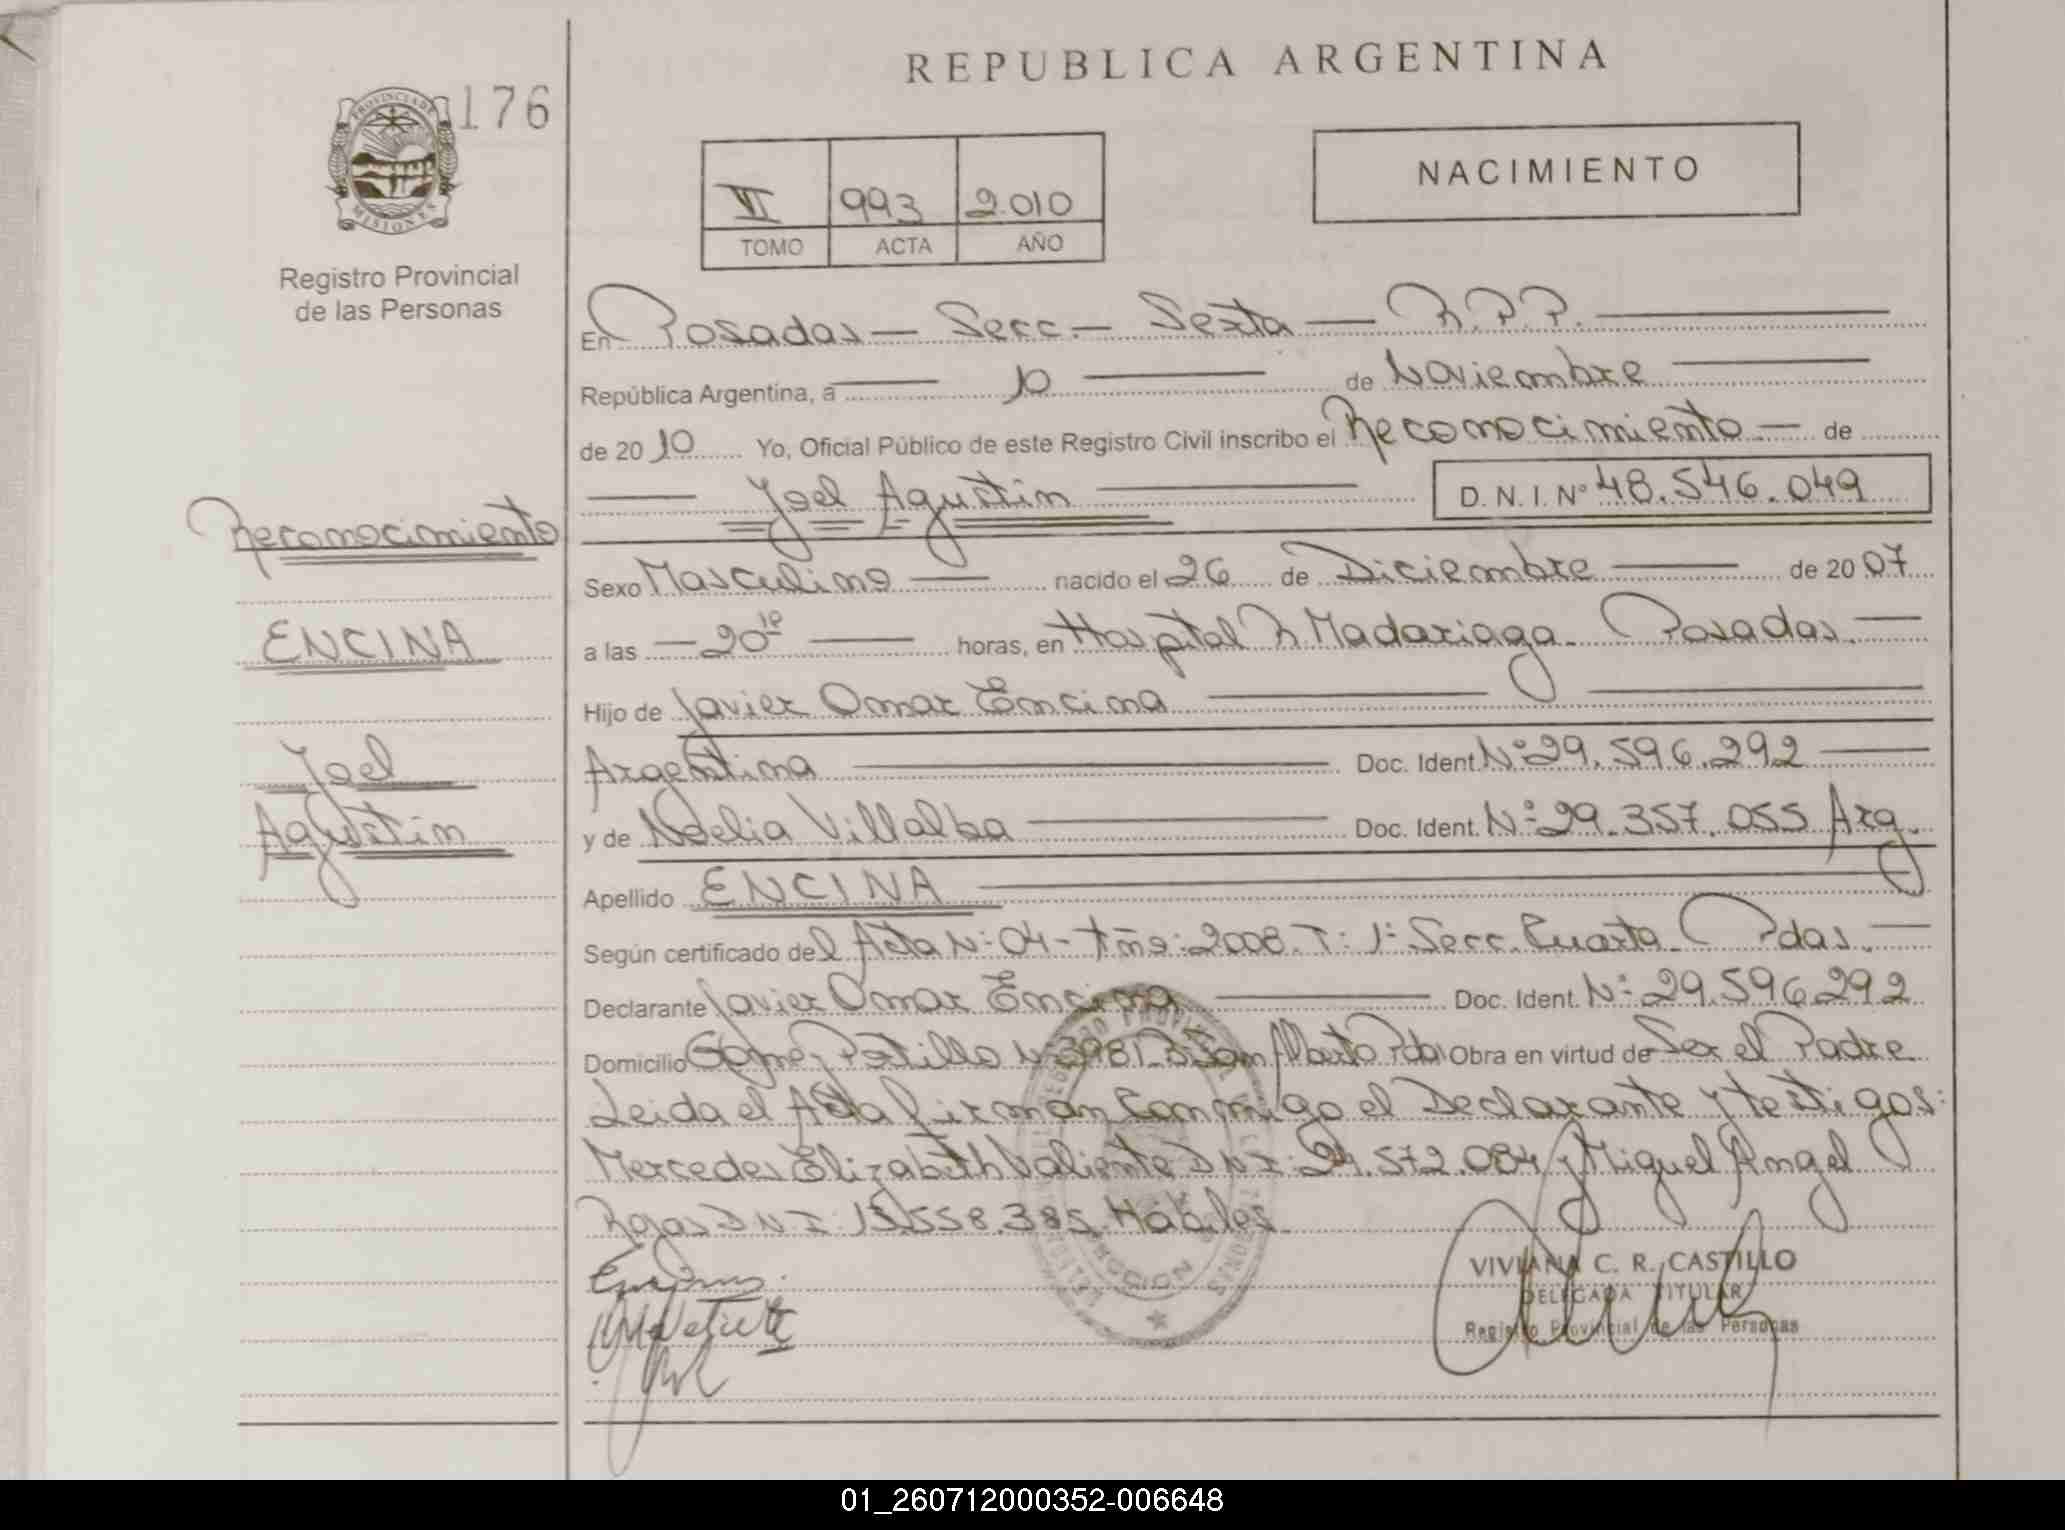 REPUBLICA ARGENTINA
176
PROVINCIA DE
MISIONES
Registro Provincial
de las Personas
VI 993 2.010
TOMO ACTA AÑO
NACIMIENTO
En Posadas — Secc. — Sexta — R.P.P.
República Argentina, a — 10 — de Noviembre
de 20 10 Yo, Oficial Público de este Registro Civil inscribo el Reconocimiento — de
Joel Agustin D.N.I. Nº 48.546.049
Reconocimiento
Sexo Masculino — nacido el 26 de Diciembre — de 20 07
ENCINA
a las — 20 10 — horas, en Hospital R Madariaga - Posadas. —
Hijo de Javier Omar Encina
Joel
Argentina — Doc. Ident. Nº 29.596.292 —
Agustin
y de Noelia Villalba — Doc. Ident. Nº 29.357.055 Arg.
Apellido ENCINA
Según certificado del Acta Nº 04 - Año: 2008. T: 1º Secc. Cuarta - Pdas. —
Declarante Javier Omar Encina — Doc. Ident. Nº 29.596.292
Domicilio Portillo Nº 3981 Bº San Alberto Pdas Obra en virtud de Ser el Padre
Leida el Acta firman Conmigo el Declarante y testigos:
Mercedes Elizabeth Valiente D N I: 24.572.084 y Miguel Angel
Rojas D N I: 13.558.385. Hábiles.
VIVIANA C. R. CASTILLO
DELEGADA TITULAR
Registro Provincial de las Personas
01_260712000352-006648